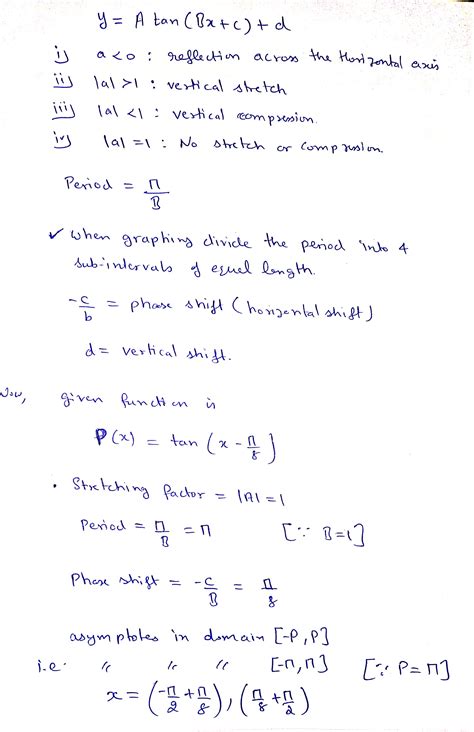 y = A tan (Bx + c) + d
i) a < 0 : reflection across the Horizontal axis
ii) |a| > 1 : vertical stretch
iii) |a| < 1 : vertical compression.
iv) |a| = 1 : No stretch or compression.
Period = Π/B
✓ when graphing divide the period into 4
sub-intervals of equal length.
-c/b = phase shift (horizental shift)
d = vertical shift.
Now, given function is
P(x) = tan (x - Π/8)
• Stretching factor = |A| = 1
Period = Π/B = Π [∵ B = 1]
Phase shift = -c/B = Π/8
asymptotes in domain [-P, P]
i.e. " " " [-Π, Π] [∵ P = Π]
x = (-Π/2 + Π/8), (Π/8 + Π/2)